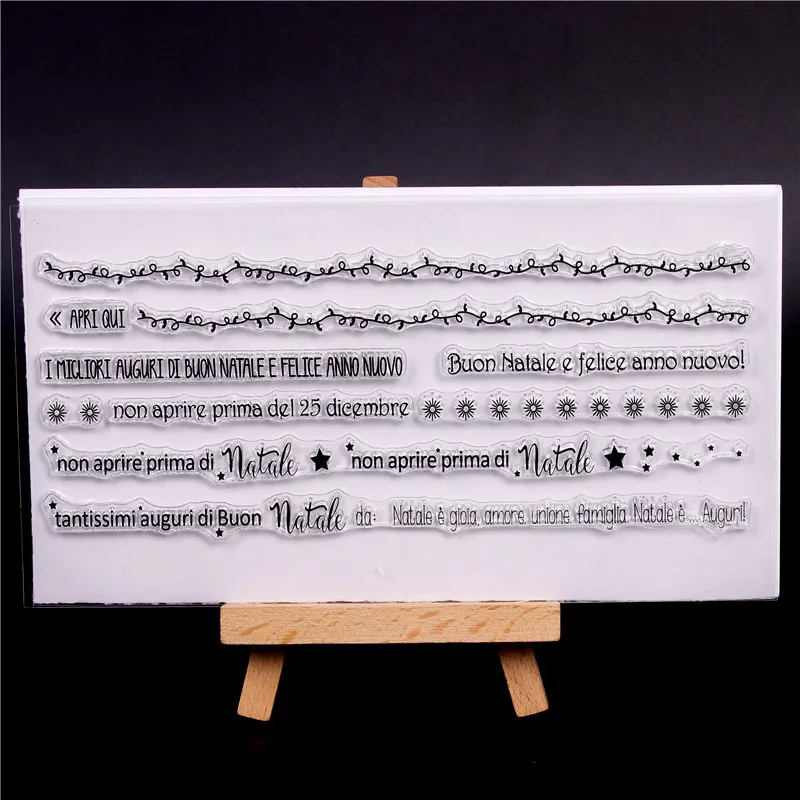 « APRI QUI
I MIGLIORI AUGURI DI BUON NATALE E FELICE ANNO NUOVO Buon Natale e felice anno nuovo!
non aprire prima del 25 dicembre
non aprire prima di Natale non aprire prima di Natale
tantissimi auguri di Buon Natale da: Natale è gioia, amore, unione, famiglia. Natale è ... Auguri!